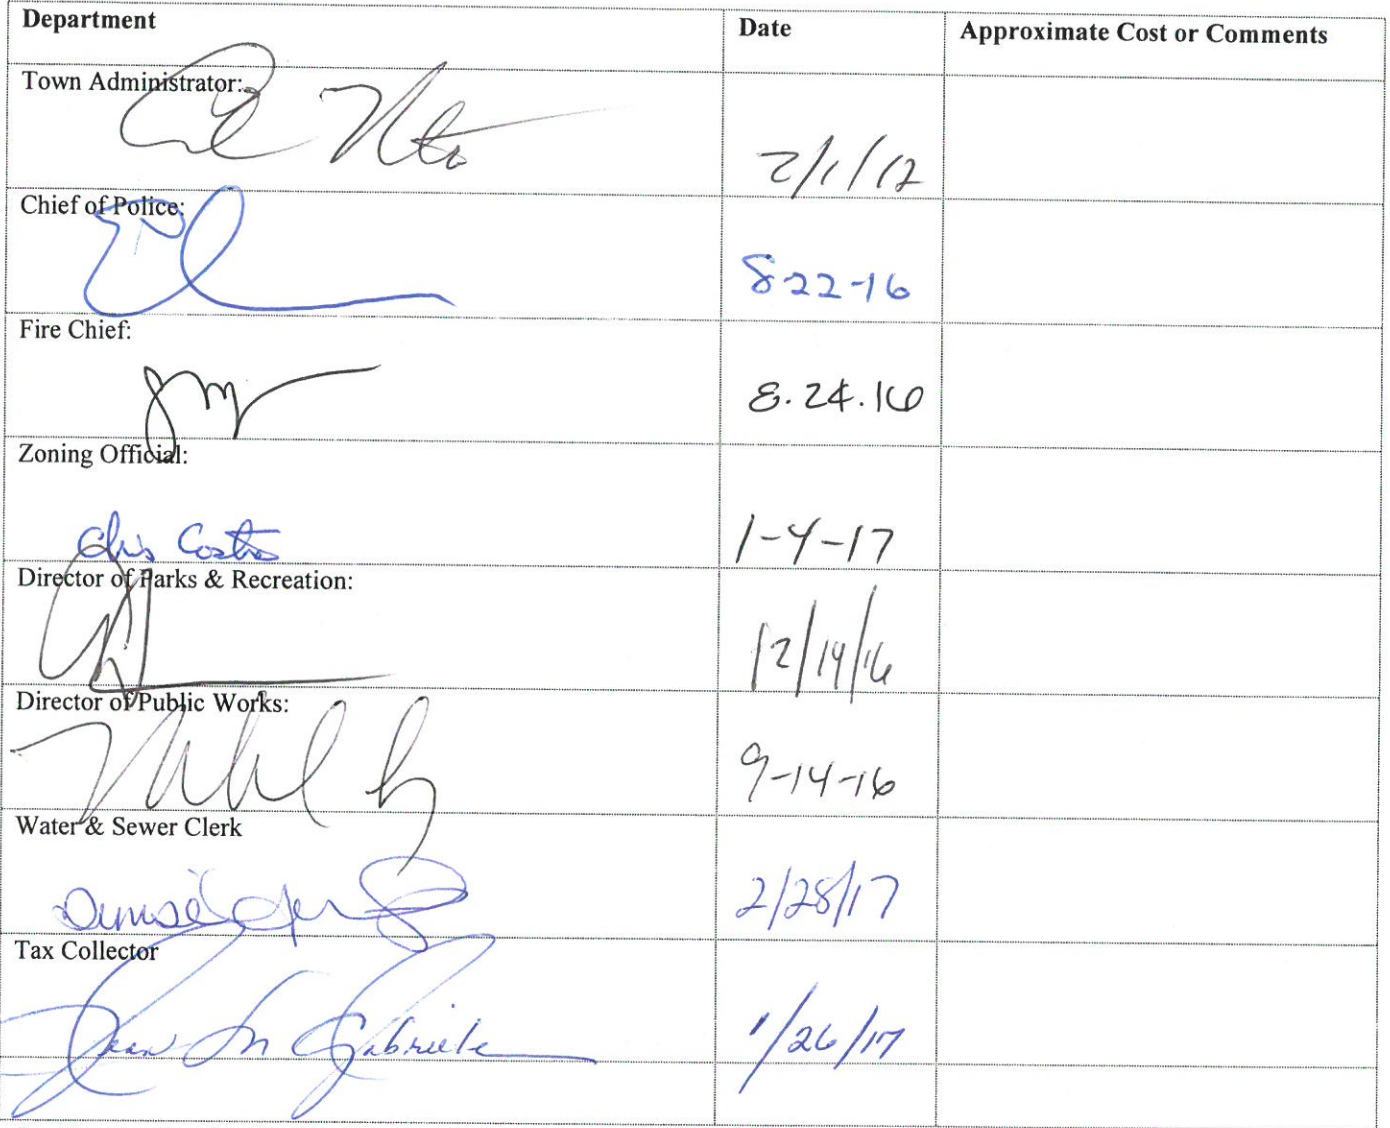 Department Date Approximate Cost or Comments
Town Administrator:
2/1/12
Chief of Police:
8-22-16
Fire Chief:
8.24.16
Zoning Official:
Chris Costa 1-4-17
Director of Parks & Recreation:
12/14/16
Director of Public Works:
9-14-16
Water & Sewer Clerk
Denise 2/28/17
Tax Collector
Jean M Gabriele 1/26/17